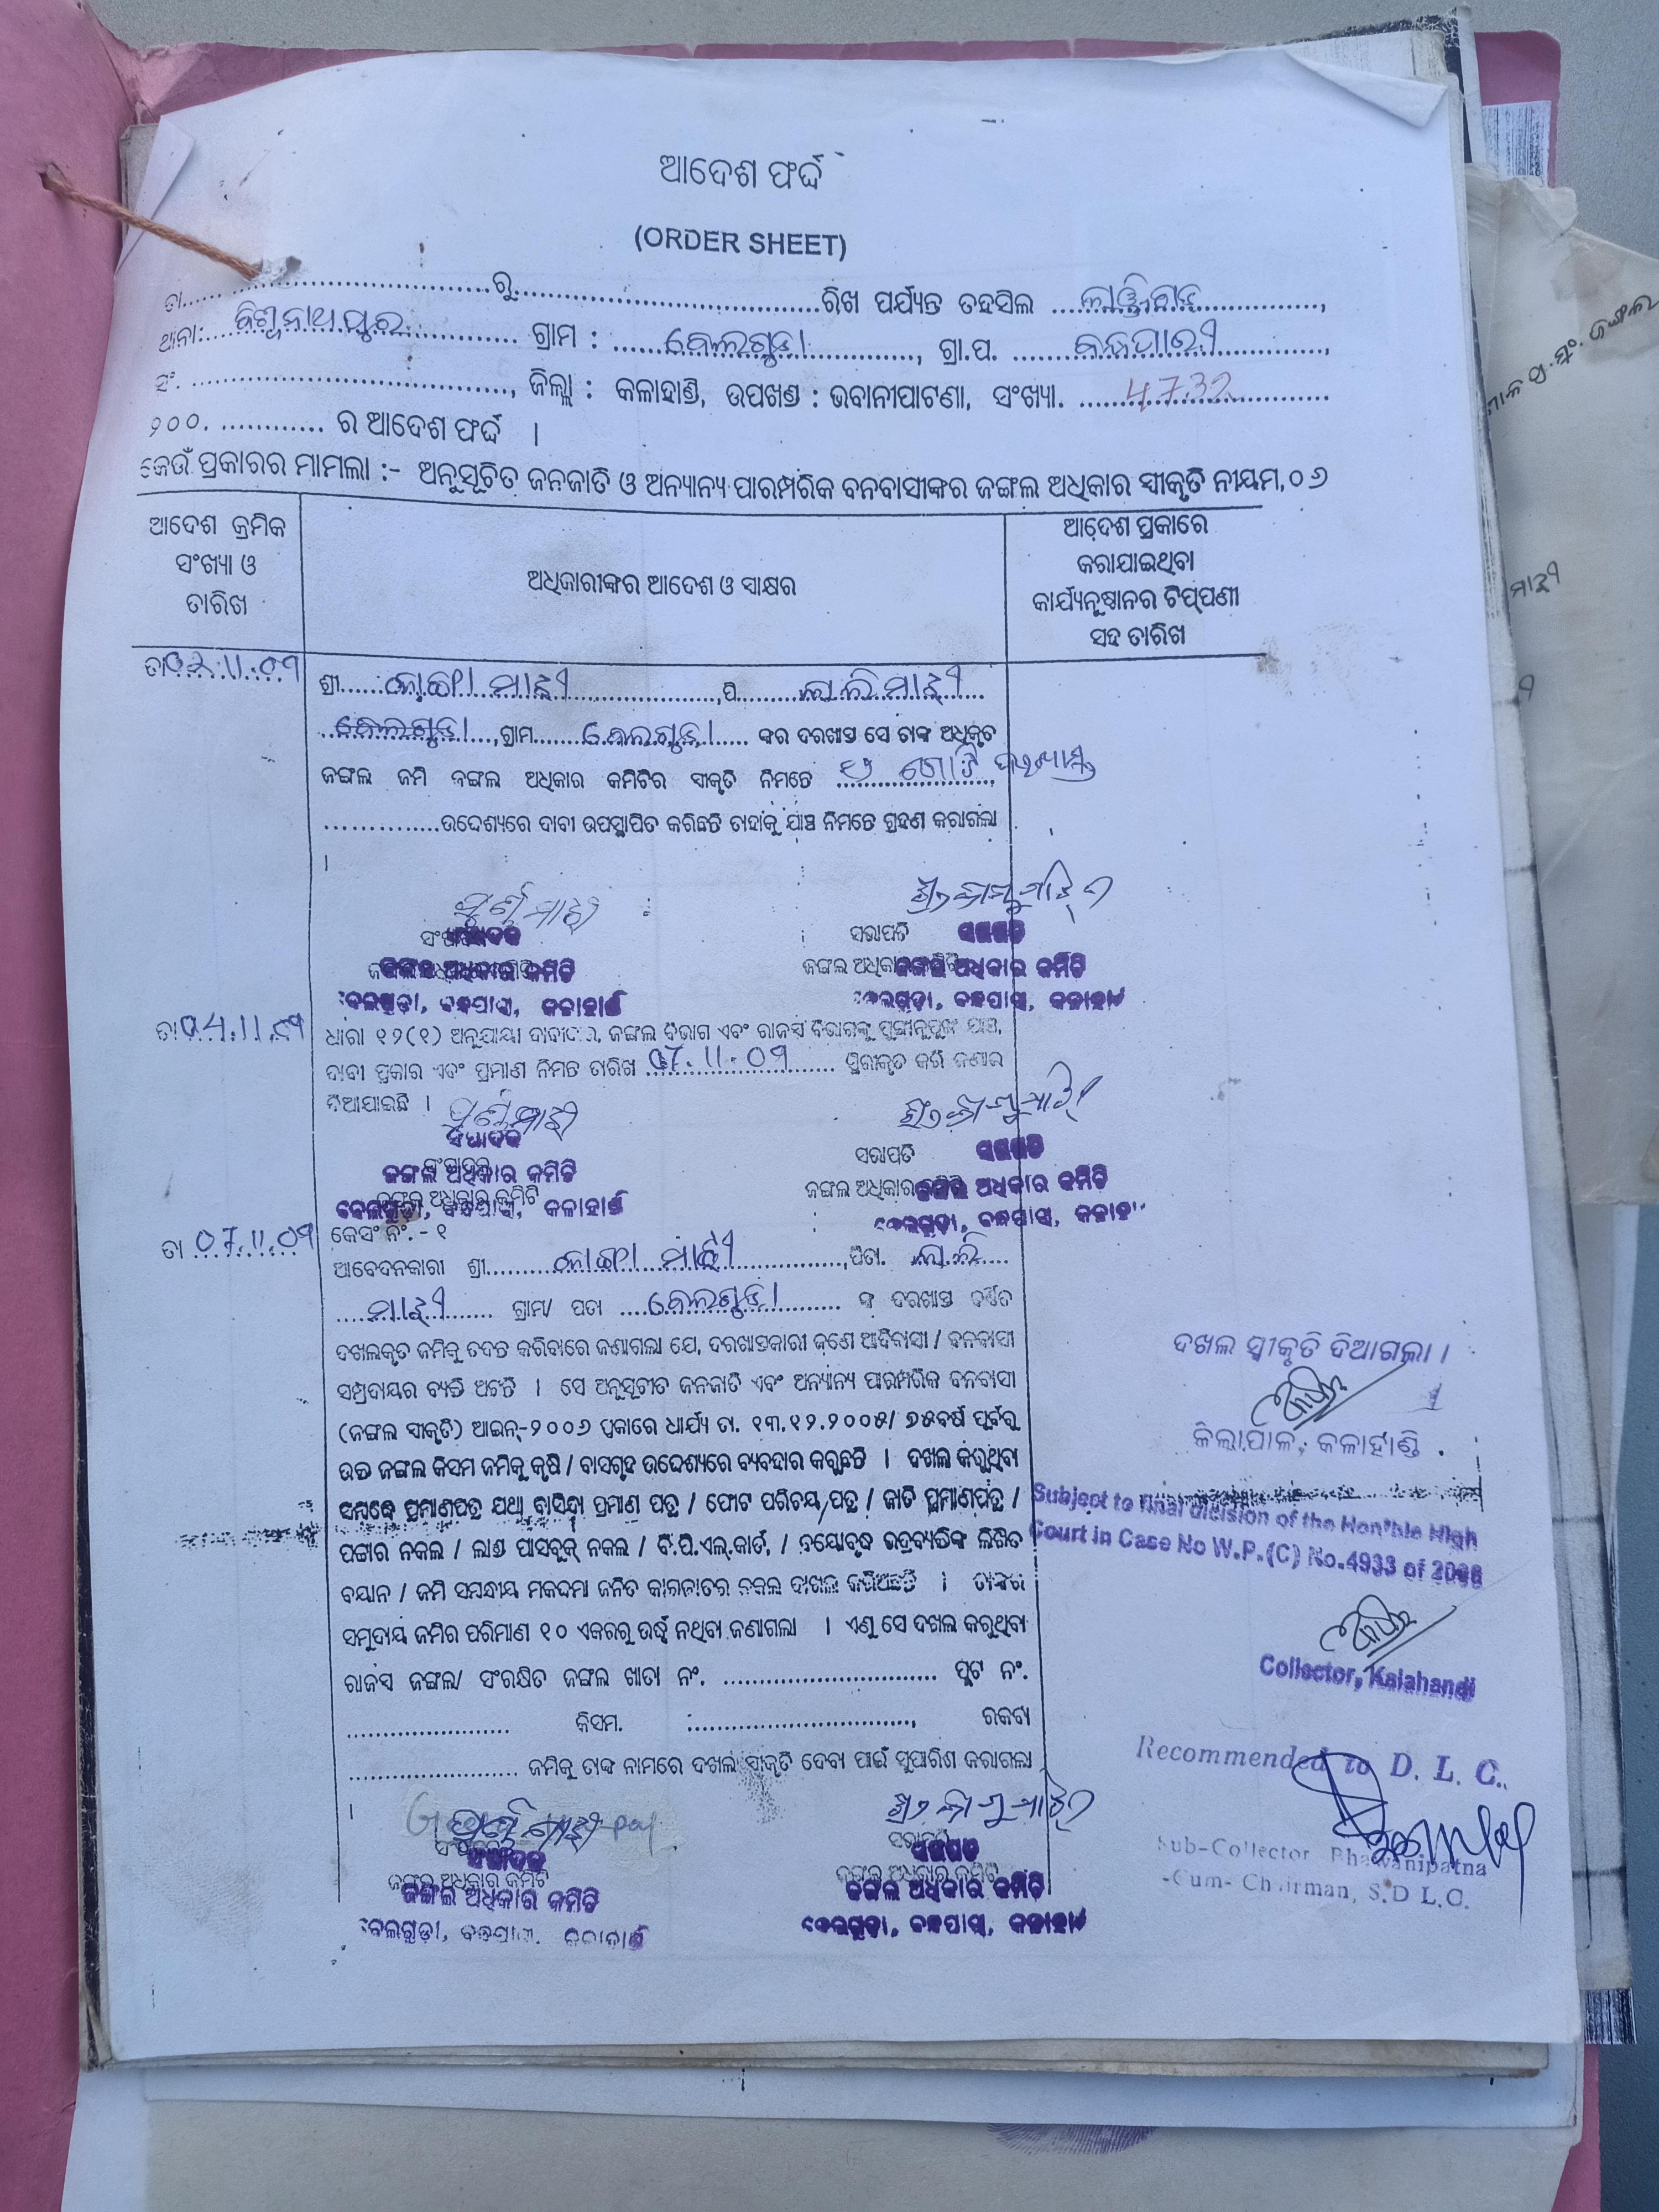 ଆଦେଶ ଫର୍ଦ୍ଦ
(ORDER SHEET)
ତା..............................ରୁ..............................ରିଖ ପର୍ଯ୍ୟନ୍ତ ତହସିଲ
ଥାନା: ବିଶ୍ୱନାଥପୁର ଗ୍ରାମ : ବେଲଗୁଡା, ଗ୍ରା.ପ.
ସଂ. .............................., ଜିଲ୍ଲା : କଳାହାଣ୍ଡି, ଉପଖଣ୍ଡ : ଭବାନୀପାଟଣା, ସଂଖ୍ୟା. 4732
୨୦୦. ............ ର ଆଦେଶ ଫର୍ଦ୍ଦ ।
କେଉଁ ପ୍ରକାରର ମାମଲା :- ଅନୁସୂଚିତ ଜନଜାତି ଓ ଅନ୍ୟାନ୍ୟ ପାରମ୍ପରିକ ବନବାସୀଙ୍କର ଜଙ୍ଗଲ ଅଧିକାର ସ୍ଵୀକୃତି ନୀୟମ,୦୬
ଆଦେଶ କ୍ରମିକ ସଂଖ୍ୟା ଓ ତାରିଖ
ଅଧିକାରୀଙ୍କର ଆଦେଶ ଓ ସାକ୍ଷର
ଆଦେଶ ପ୍ରକାରେ
କରାଯାଇଥିବା
କାର୍ଯ୍ୟାନୁଷ୍ଠାନର ଟିପ୍ପଣୀ
ସହ ତାରିଖ
ତା ୦୨.11.୦୩
ଶ୍ରୀ ମାଝୀ, ପି. ଲାଲି ମାଝୀ
ବେଲଗୁଡା, ଗ୍ରାମ ବେଲଗୁଡା ଙ୍କର ଦରଖାସ୍ତ ସେ ତାଙ୍କ ଅଧିକୃତ
ଜଙ୍ଗଲ ଜମି ଜଙ୍ଗଲ ଅଧିକାର କମିଟିର ସ୍ୱୀକୃତି ନିମନ୍ତେ ଗୋଟି ଦରଖାସ୍ତ
..............ଉଦ୍ଦେଶ୍ୟରେ ଦାବୀ ଉପସ୍ଥାପିତ କରିଛନ୍ତି ତାହାକୁ ଯାଞ୍ଚ ନିମନ୍ତେ ଗ୍ରହଣ କରାଗଲା
।
ସମ୍ପାଦକ ସଭାପତି
ଜଙ୍ଗଲ ଅଧିକାର କମିଟି ଜଙ୍ଗଲ ଅଧିକାର କମିଟି
ବେଲଗୁଡା, କଳାହାଣ୍ଡି ବେଲଗୁଡା, କଳାହାଣ୍ଡି
ଧାରା ୧୨(୧) ଅନୁଯାୟୀ ଦାବୀଦାର, ଜଙ୍ଗଲ ବିଭାଗ ଏବଂ ରାଜସ୍ୱ ବିଭାଗଙ୍କୁ ପୁଙ୍ଖାନୁପୁଙ୍ଖ ଯାଞ୍ଚ,
ଦାବୀ ପ୍ରକାର ଏବଂ ପ୍ରମାଣ ନିମନ୍ତେ ତାରିଖ ୦7.11.୦୩ ସ୍ଥିରୀକୃତ କରି ଜଣାଇ
ଦିଆଯାଇଛି ।
ସମ୍ପାଦକ ସଭାପତି
ଜଙ୍ଗଲ ଅଧିକାର କମିଟି ଜଙ୍ଗଲ ଅଧିକାର କମିଟି
ବେଲଗୁଡା, କଳାହାଣ୍ଡି ବେଲଗୁଡା
ତା ୦7.11.୦୩
କେସ ନଂ. - ୧
ଆବେଦନକାରୀ ଶ୍ରୀ ମାଝୀ, ପିତା. ଲାଲି
ମାଝୀ ଗ୍ରାମ/ ପତା ବେଲଗୁଡା ଙ୍କ ଦରଖାସ୍ତ ବର୍ଣ୍ଣିତ
ଦଖଲକୃତ ଜମିକୁ ତଦନ୍ତ କରିବାରେ ଜଣାଗଲା ଯେ, ଦରଖାସ୍ତକାରୀ ଜଣେ ଆଦିବାସୀ / ବନବାସୀ
ସମ୍ପ୍ରଦାୟର ବ୍ୟକ୍ତି ଅଟନ୍ତି । ସେ ଅନୁସୂଚୀତ ଜନଜାତି ଏବଂ ଅନ୍ୟାନ୍ୟ ପାରମ୍ପରିକ ବନବାସୀ
(ଜଙ୍ଗଲ ସ୍ୱୀକୃତି) ଆଇନ୍-୨୦୦୬ ପ୍ରକାରେ ଧାର୍ଯ୍ୟ ତା. ୧୩.୧୨.୨୦୦୫/ ୭୫ବର୍ଷ ପୂର୍ବରୁ
ଉକ୍ତ ଜଙ୍ଗଲ କିସମ ଜମିକୁ କୃଷି / ବାସଗୃହ ଉଦ୍ଦେଶ୍ୟରେ ବ୍ୟବହାର କରୁଛନ୍ତି । ଦଖଲ କରୁଥିବା
ସମ୍ବନ୍ଧେ ପ୍ରମାଣପତ୍ର ଯଥା ବାସିନ୍ଦା ପ୍ରମାଣ ପତ୍ର / ଫୋଟ ପରିଚୟ ପତ୍ର / ଜାତି ପ୍ରମାଣପତ୍ର /
ପଟ୍ଟାର ନକଲ / ଲାଣ୍ଡ ପାସବୁକ୍ ନକଲ / ବି.ପି.ଏଲ୍.କାର୍ଡ, / ବୟୋବୃଦ୍ଧ ଭଦ୍ରବ୍ୟକ୍ତିଙ୍କ ଲିଖିତ
ବୟାନ / ଜମି ସମ୍ବନ୍ଧୀୟ ମକଦ୍ଦମା ଜନିତ କାଗଜାତର ନକଲ ଦାଖଲ କରିଅଛନ୍ତି । ତାଙ୍କର
ସମୁଦାୟ ଜମିର ପରିମାଣ ୧୦ ଏକରରୁ ଉର୍ଦ୍ଧ୍ୱ ନଥିବା ଜଣାଗଲା । ଏଣୁ ସେ ଦଖଲ କରୁଥିବା
ରାଜସ୍ୱ ଜଙ୍ଗଲ/ ସଂରକ୍ଷିତ ଜଙ୍ଗଲ ଖାତା ନଂ. .............................. ପ୍ଲଟ ନଂ.
....................... କିସମ. .............................., ରକବା
....................... ଜମିକୁ ତାଙ୍କ ନାମରେ ଦଖଲ ସ୍ୱୀକୃତି ଦେବା ପାଇଁ ସୁପାରିଶ କରାଗଲା
।
ସମ୍ପାଦକ ସଭାପତି
ଜଙ୍ଗଲ ଅଧିକାର କମିଟି ଜଙ୍ଗଲ ଅଧିକାର କମିଟି
ବେଲଗୁଡା ବେଲଗୁଡା, କଳାହାଣ୍ଡି
ଦଖଲ ସ୍ୱୀକୃତି ଦିଆଗଲା ।
ଜିଲ୍ଲାପାଳ, କଳାହାଣ୍ଡି .
Subject to final dicision of the Hon'ble High
Court in Case No W.P.(C) No.4933 of 2008
Collector, Kalahandi
Recommended to D. L. C.
Sub-Collector Bhawanipatna
-Cum- Chairman, S.D L.C.